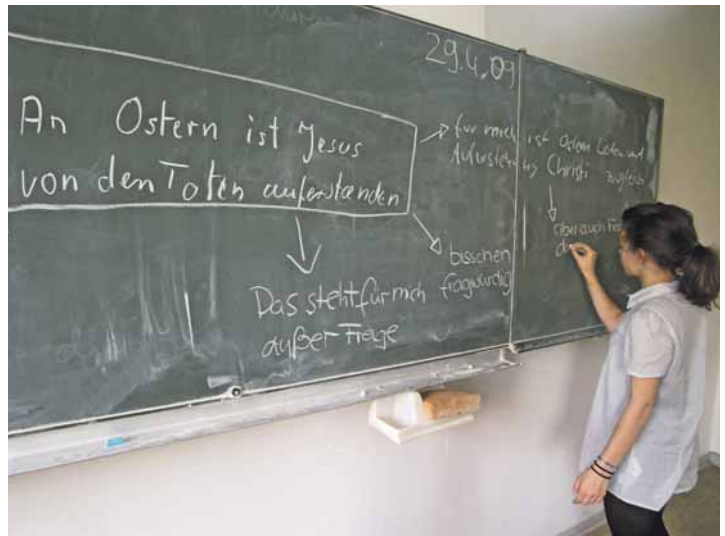 29.4.09
An Ostern ist Jesus
von den Toten auferstanden
für mich ist Ostern Leiden und
Auferstehung Christi zugleich
aber auch
bisschen
fragwürdig
Das steht für mich
außer Frage